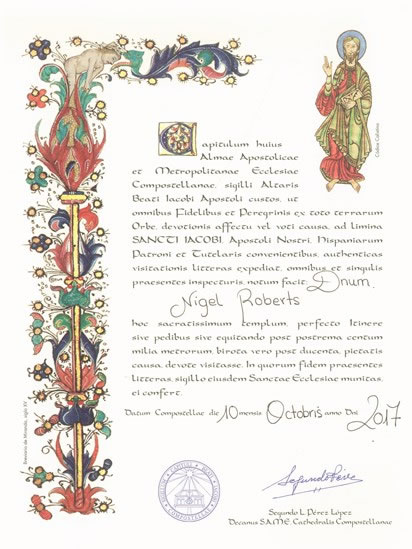 Capitulum huius
Almae Apostolicae
et Metropolitanae Ecclesiae
Compostellanae, sigilli Altaris
Beati Iacobi Apostoli custos, ut
omnibus Fidelibus et Peregrinis ex toto terrarum
Orbe, devotionis affectu vel voti causa, ad limina
SANCTI IACOBI, Apostoli Nostri, Hispaniarum
Patroni et Tutelaris convenientibus, authenticas
visitationis litteras expediat, omnibus et singulis
praesentes inspecturis, notum facit: Dnum.
Nigel Roberts
hoc sacratissimum templum, perfecto Itinere
sive pedibus sive equitando post postrema centum
milia metrorum, birota vero post ducenta, pietatis
causa, devote visitasse. In quorum fidem praesentes
litteras, sigillo eiusdem Sanctae Ecclesiae munitas,
ei confert.
Datum Compostellae die 10 mensis Octobris anno Dni 2017
Segundo L. Pérez López
Decanus S.A.M.E. Cathedralis Compostellanae
Codex Calixtinus